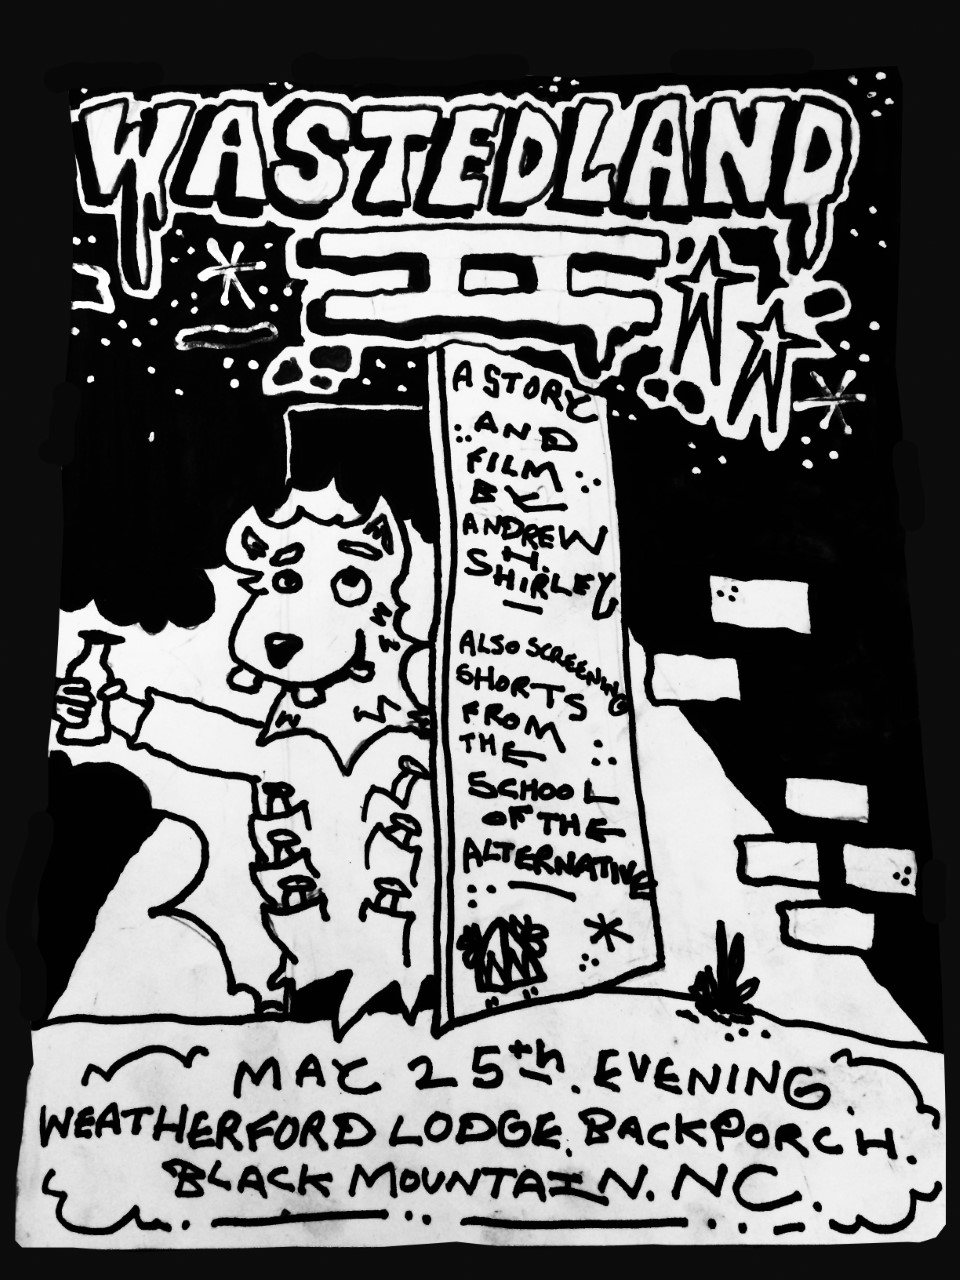 WASTEDLAND
II
A STORY
AND
FILM
BY
ANDREW
H.
SHIRLEY
ALSO SCREENING
SHORTS
FROM
THE
SCHOOL
OF THE
ALTERNATIVE
MAY 25th. EVENING.
WEATHERFORD LODGE. BACKPORCH.
BLACK MOUNTAIN. NC.